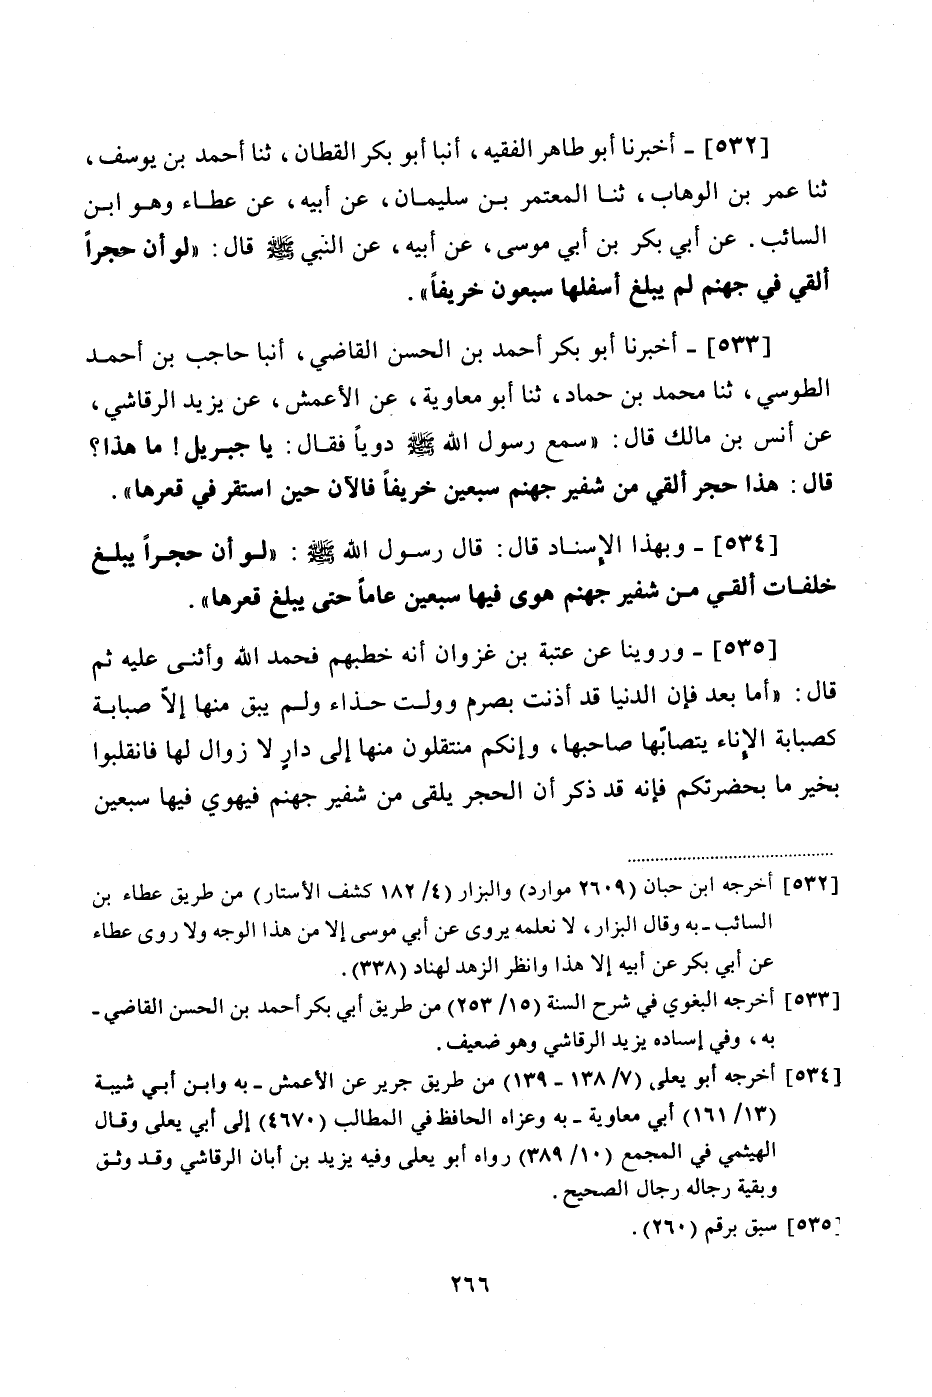 [٥٣٢] ـ أخبرنا أبو طاهر الفقيه، أنبا أبو بكر القطان، ثنا أحمد بن يوسف،
ثنا عمر بن الوهاب، ثنا المعتمر بن سليمان، عن أبيه، عن عطاء وهو ابن
السائب. عن أبي بكر بن أبي موسى، عن أبيه، عن النبي ﷺ قال: «لو أن حجراً
ألقي في جهنم لم يبلغ أسفلها سبعون خريفاً».
[٥٣٣] ـ أخبرنا أبو بكر أحمد بن الحسن القاضي، أنبا حاجب بن أحمد
الطوسي، ثنا محمد بن حماد، ثنا أبو معاوية، عن الأعمش، عن يزيد الرقاشي،
عن أنس بن مالك قال: «سمع رسول الله ﷺ دوياً فقال: يا جبريل! ما هذا؟
قال: هذا حجر ألقي من شفير جهنم سبعين خريفاً فالآن حين استقر في قعرها».
[٥٣٤] ـ وبهذا الإسناد قال: قال رسول الله ﷺ: «لو أن حجراً يبلغ
خلفات ألقي من شفير جهنم هوى فيها سبعين عاماً حتى يبلغ قعرها».
[٥٣٥] ـ وروينا عن عتبة بن غزوان أنه خطبهم فحمد الله وأثنى عليه ثم
قال: «أما بعد فإن الدنيا قد أذنت بصرم وولت حذاء ولم يبق منها إلاّ صبابة
كصبابة الإناء يتصابّها صاحبها، وإنكم منتقلون منها إلى دارٍ لا زوال لها فانقلبوا
بخير ما بحضرتكم فإنه قد ذكر أن الحجر يلقى من شفير جهنم فيهوي فيها سبعين
[٥٣٢] أخرجه ابن حبان (٢٦٠٩ موارد) والبزار (٤/ ١٨٢ كشف الأستار) من طريق عطاء بن
السائب ـ به وقال البزار، لا نعلمه يروى عن أبي موسى إلا من هذا الوجه ولا روى عطاء
عن أبي بكر عن أبيه إلا هذا وانظر الزهد لهناد (٣٣٨).
[٥٣٣] أخرجه البغوي في شرح السنة (١٥/ ٢٥٣) من طريق أبي بكر أحمد بن الحسن القاضي ـ
به، وفي إساده يزيد الرقاشي وهو ضعيف.
[٥٣٤] أخرجه أبو يعلى (٧/ ١٣٨ - ١٣٩) من طريق جرير عن الأعمش ـ به وابن أبي شيبة
(١٣/ ١٦١) أبي معاوية ـ به وعزاه الحافظ في المطالب (٤٦٧٠) إلى أبي يعلى وقال
الهيثمي في المجمع (١٠/ ٣٨٩) رواه أبو يعلى وفيه يزيد بن أبان الرقاشي وقد وثق
وبقية رجاله رجال الصحيح.
[٥٣٥] سبق برقم (٢٦٠).
٢٦٦